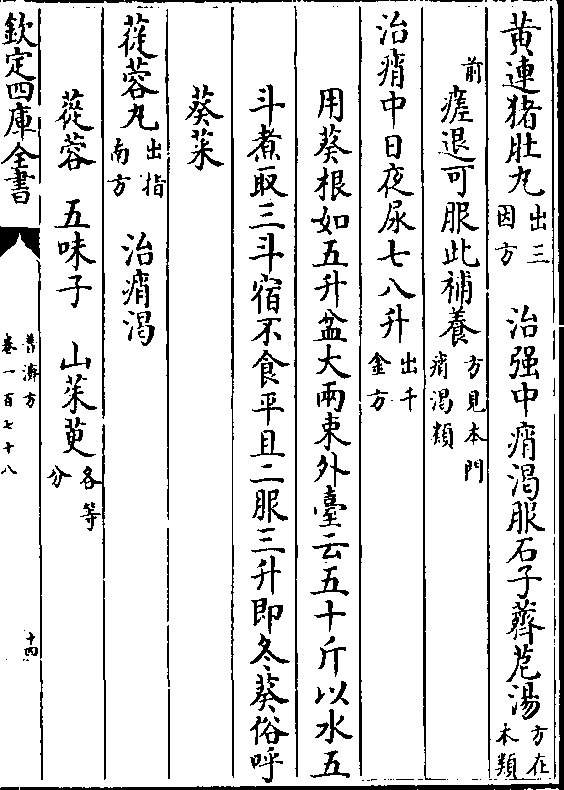 黄連猪肚丸出三因方　治强中痟渴服石子薺苨湯方在本類
前瘥退可服此補養方見本門痟渴類
治痟中日夜尿七八升出千金方
用葵根如五升盆大兩束外臺云五十斤以水五
斗煮取三斗宿不食平旦二服三升即冬葵俗呼
葵菜
蓯蓉丸出指南方　治痟渴
蓯蓉　五味子　山茱萸各等分
欽定四庫全書　普濟方卷一百七十八　十四